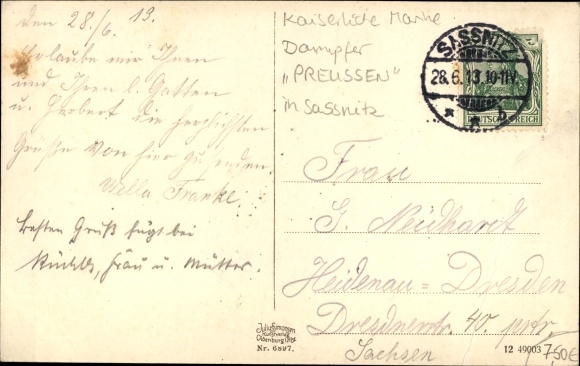 den 28./6. 13.
Erlaube mir Ihnen
und Ihren l. Gatten
u. Herbert die herzlichsten
Grüße von hier zu senden.
Wella Franke.
besten Gruß fügt bei
Frau u. Mutter.
Kaiserliche Marke
Dampfer
„PREUSSEN"
in Sassnitz
SASSNITZ
28.6.13.10-11V.
5
DEUTSCHES REICH
Frau
G. Neidhardt
Heidenau=Dresden
Dresdnerstr. 40. prtr.
Sachsen
Julius Simonsen
Kunstverlag
Oldenburg i/Hol.
Nr. 6897.
12 49003
7,50€